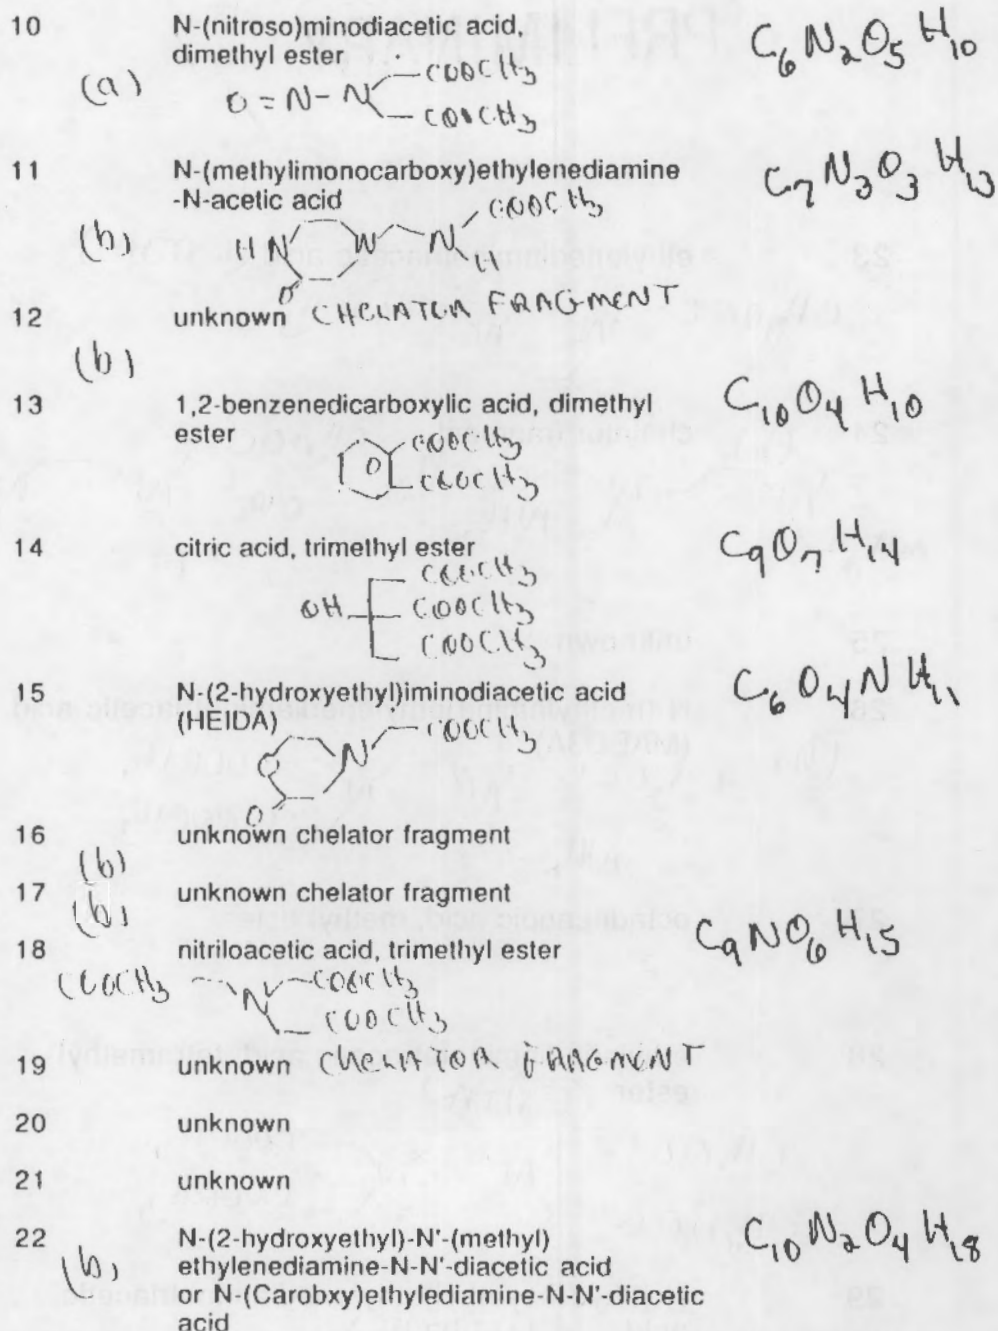 10 N-(nitroso)minodiacetic acid, C6N2O5H10
dimethyl ester
(a) O=N-N COOCH3
COOCH3
11 N-(methylimonocarboxy)ethylenediamine C7N3O3H13
-N-acetic acid
(b) HN N N COOCH3
H
O
12 unknown CHELATOR FRAGMENT
(b)
13 1,2-benzenedicarboxylic acid, dimethyl C10O4H10
ester
COOCH3
COOCH3
14 citric acid, trimethyl ester C9O7H14
COOCH3
OH COOCH3
COOCH3
15 N-(2-hydroxyethyl)iminodiacetic acid C6O4NH11
(HEIDA)
N COOCH3
O
O
16 unknown chelator fragment
(b)
17 unknown chelator fragment
(b)
18 nitriloacetic acid, trimethyl ester C9NO6H15
COOCH3 N COOCH3
COOCH3
19 unknown CHELATOR FRAGMENT
20 unknown
21 unknown
22 N-(2-hydroxyethyl)-N'-(methyl) C10N2O4H18
(b) ethylenediamine-N-N'-diacetic acid
or N-(Carobxy)ethylediamine-N-N'-diacetic
acid